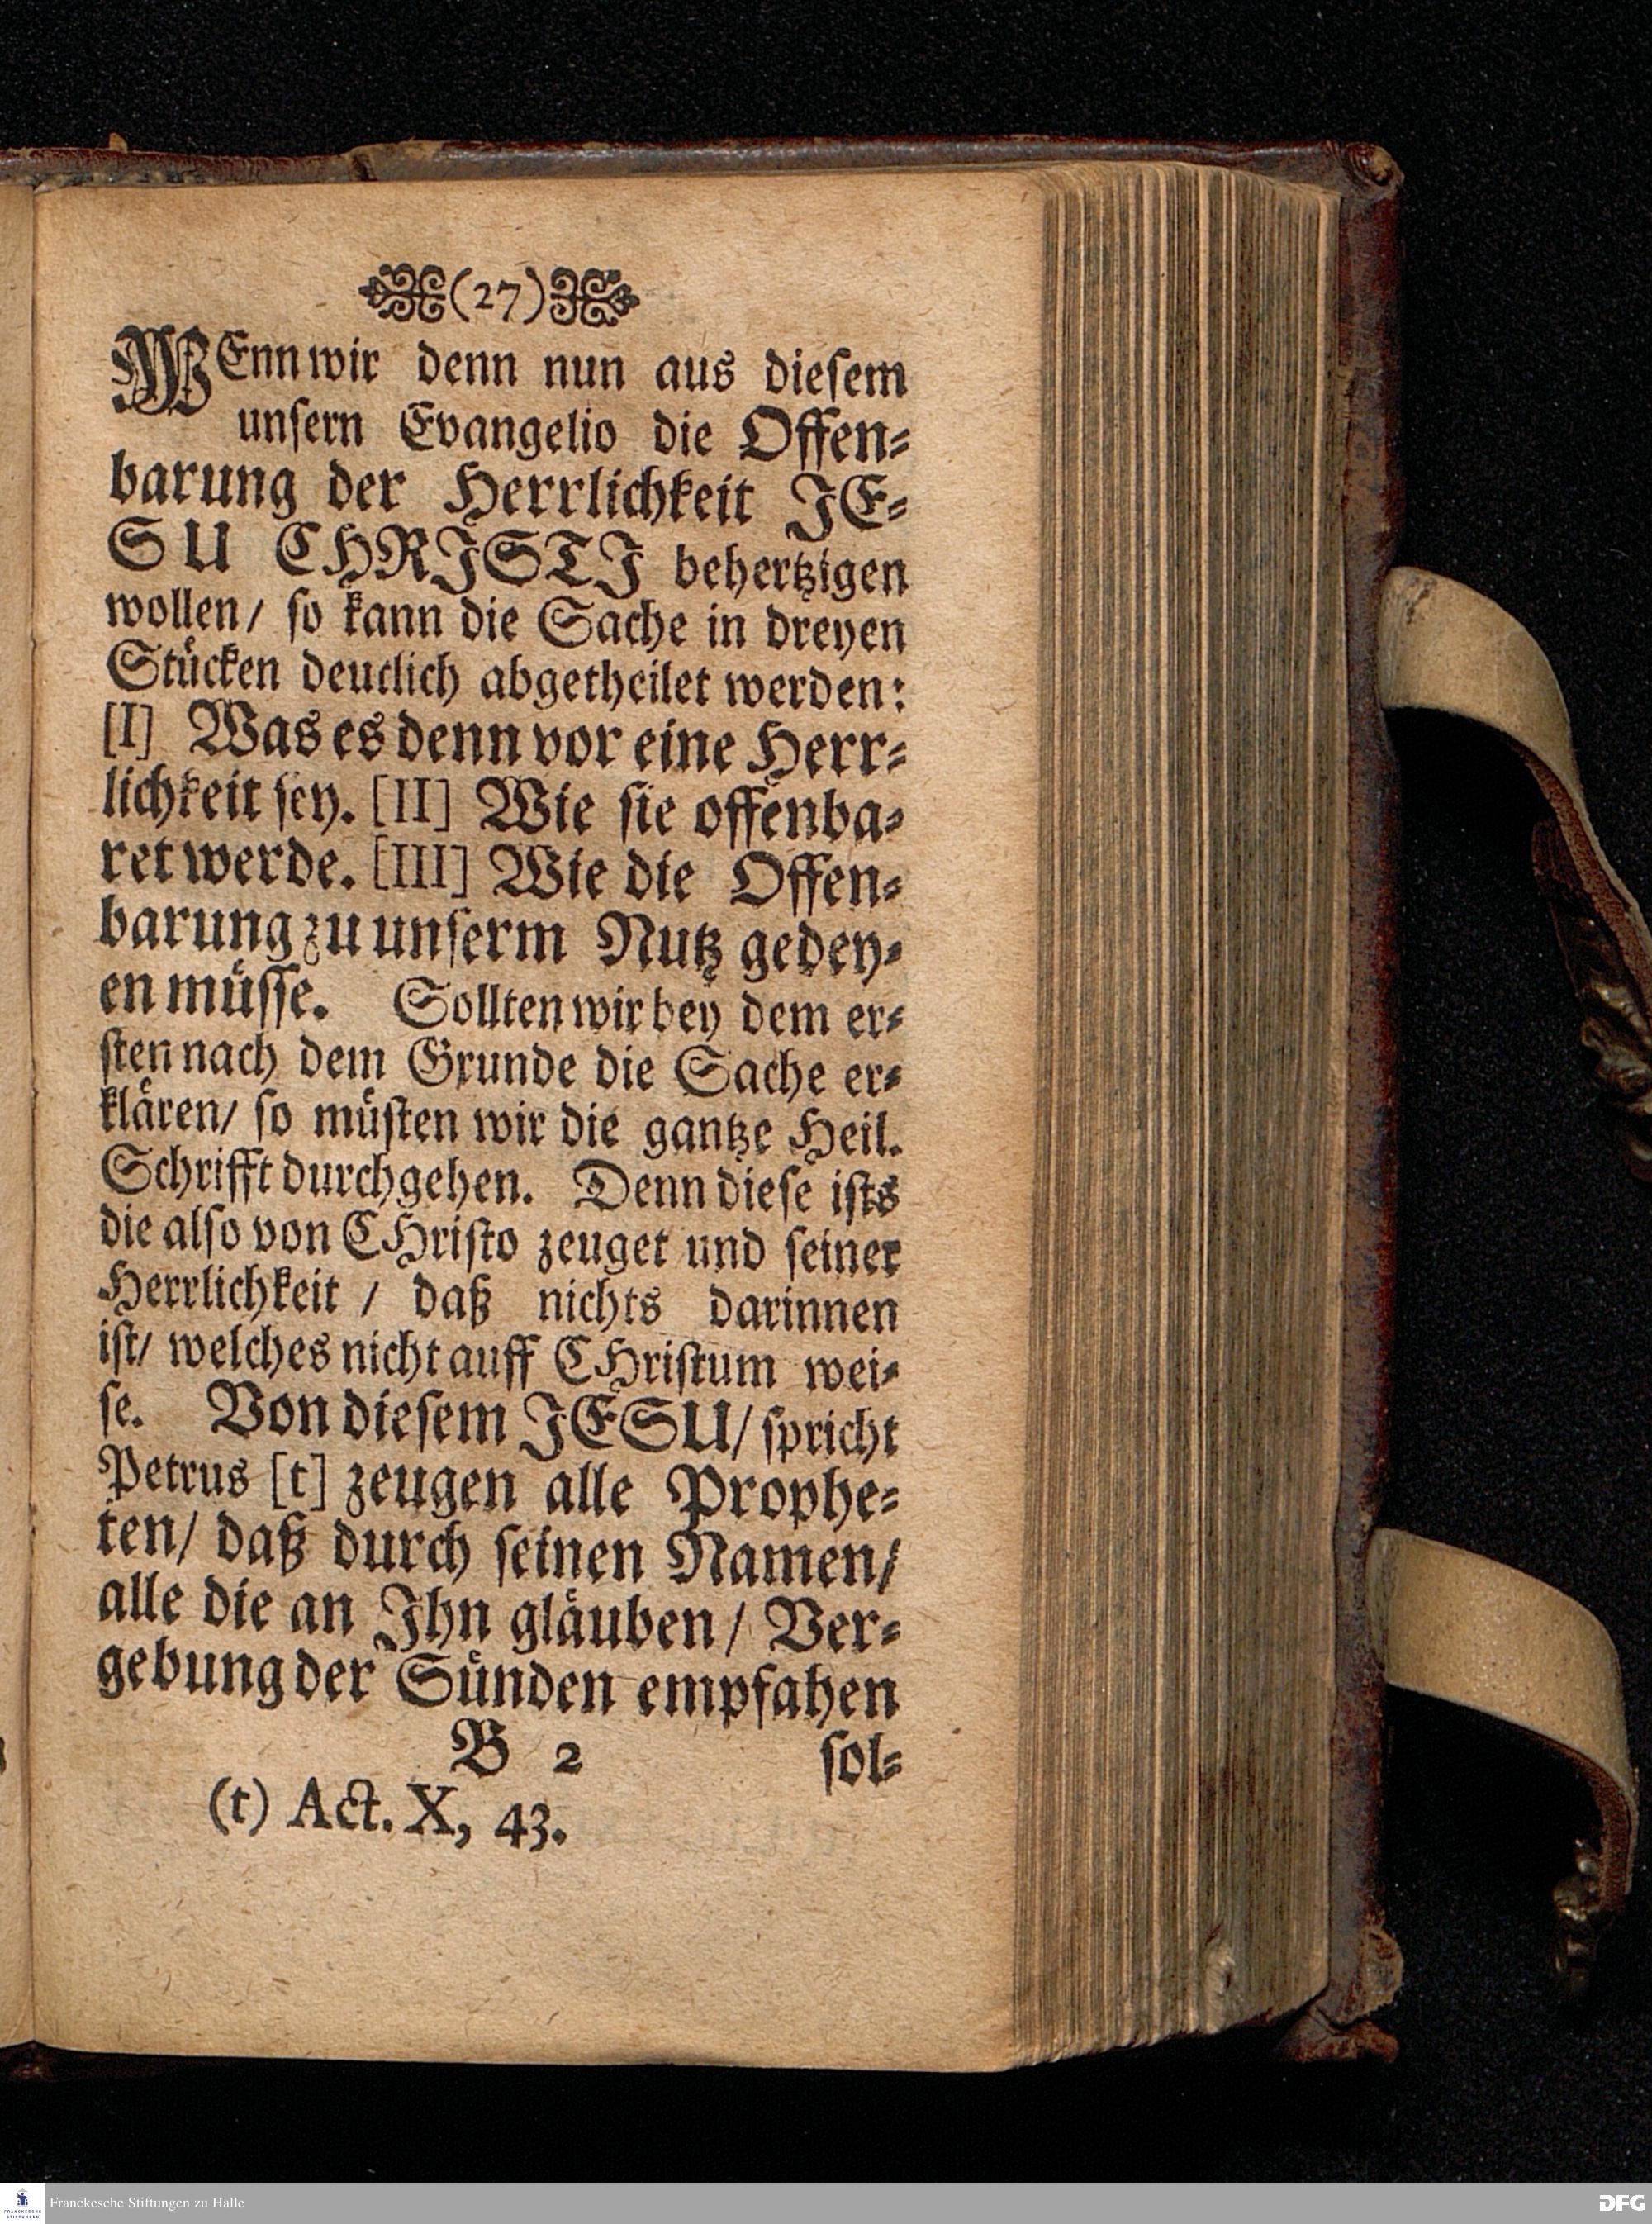 (27)
WEnn wir denn nun aus dieſem
unſern Evangelio die Offen⸗
barung der Herrlichkeit JE⸗
SU CHRISTI behertzigen
wollen/ ſo kann die Sache in dreyen
Stücken deutlich abgetheilet werden:
[I] Was es denn vor eine Herr⸗
lichkeit ſey. [II] Wie ſie offenba⸗
ret werde. [III] Wie die Offen⸗
barung zu unſerm Nutz gedey⸗
en müſſe. Sollten wir bey dem er⸗
ſten nach dem Grunde die Sache er⸗
klären/ ſo müſten wir die gantze Heil.
Schrifft durchgehen. Denn dieſe iſts
die alſo von CHriſto zeuget und ſeiner
Herrlichkeit / daß nichts darinnen
iſt/ welches nicht auff CHriſtum wei⸗
ſe. Von dieſem JESU/ ſpricht
Petrus [t] zeugen alle Prophe⸗
ten/ daß durch ſeinen Namen/
alle die an Ihn gläuben/ Ver⸗
gebung der Sünden empfahen
B 2 ſol⸗
(t) Act. X, 43.
FRANCKESCHE STIFTUNGEN
Franckesche Stiftungen zu Halle
DFG